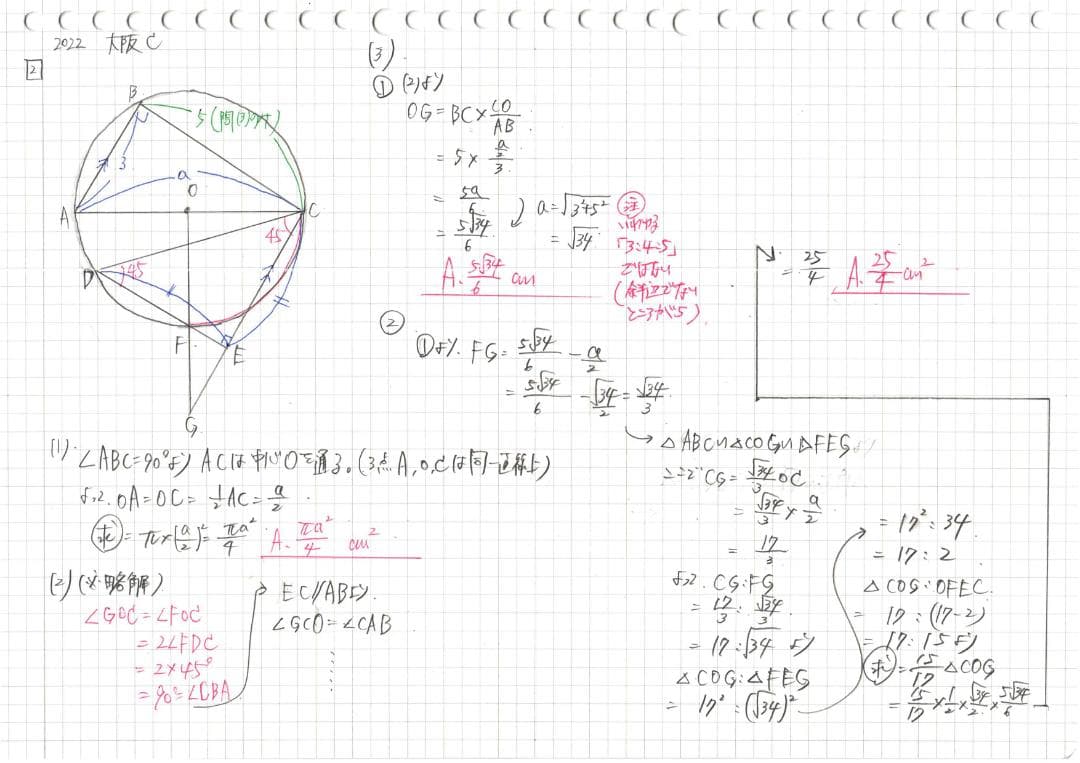 2022 大阪C
2
B
5(問(3)のみ)
3
a
O
A
C
45
D
45
F
E
G
(1).
∠ABC=90°より ACは中心Oを通る。(3点A,O,Cは同一直線上)
よって. OA=OC=1/2AC=a/2.
求=π×(a/2)²=πa²/4 A. πa²/4 cm²
(2)(※略解)
∠GOC=∠FOC
=2∠FDC
=2×45°
=90°=∠CBA
EC//ABより.
∠GCO=∠CAB
(3)
① (2)より
OG=BC×CO/AB.
=5×(a/2)/3.
=5a/6
=5√34/6
a=√3²+5²
=√34.
A. 5√34/6 cm
注
いわゆる
「3:4:5」
ではない
(斜辺でない
ところが5).
②
①より. FG=5√34/6-a/2
=5√34/6-√34/2=√34/3
△ABC∽△COG∽△FEG
ここでCG=√34/3 OC
=√34/3×a/2
=17/3
よって. CG:FG
=17/3:√34/3
=17:√34 より
△COG:△FEG
=17²:(√34)²
=17²:34
=17:2
△COG:OFEC.
=17:(17-2)
=17:15より
求=15/17△COG
=15/17×1/2×√34/2×5√34/6
=25/4 A. 25/4 cm²